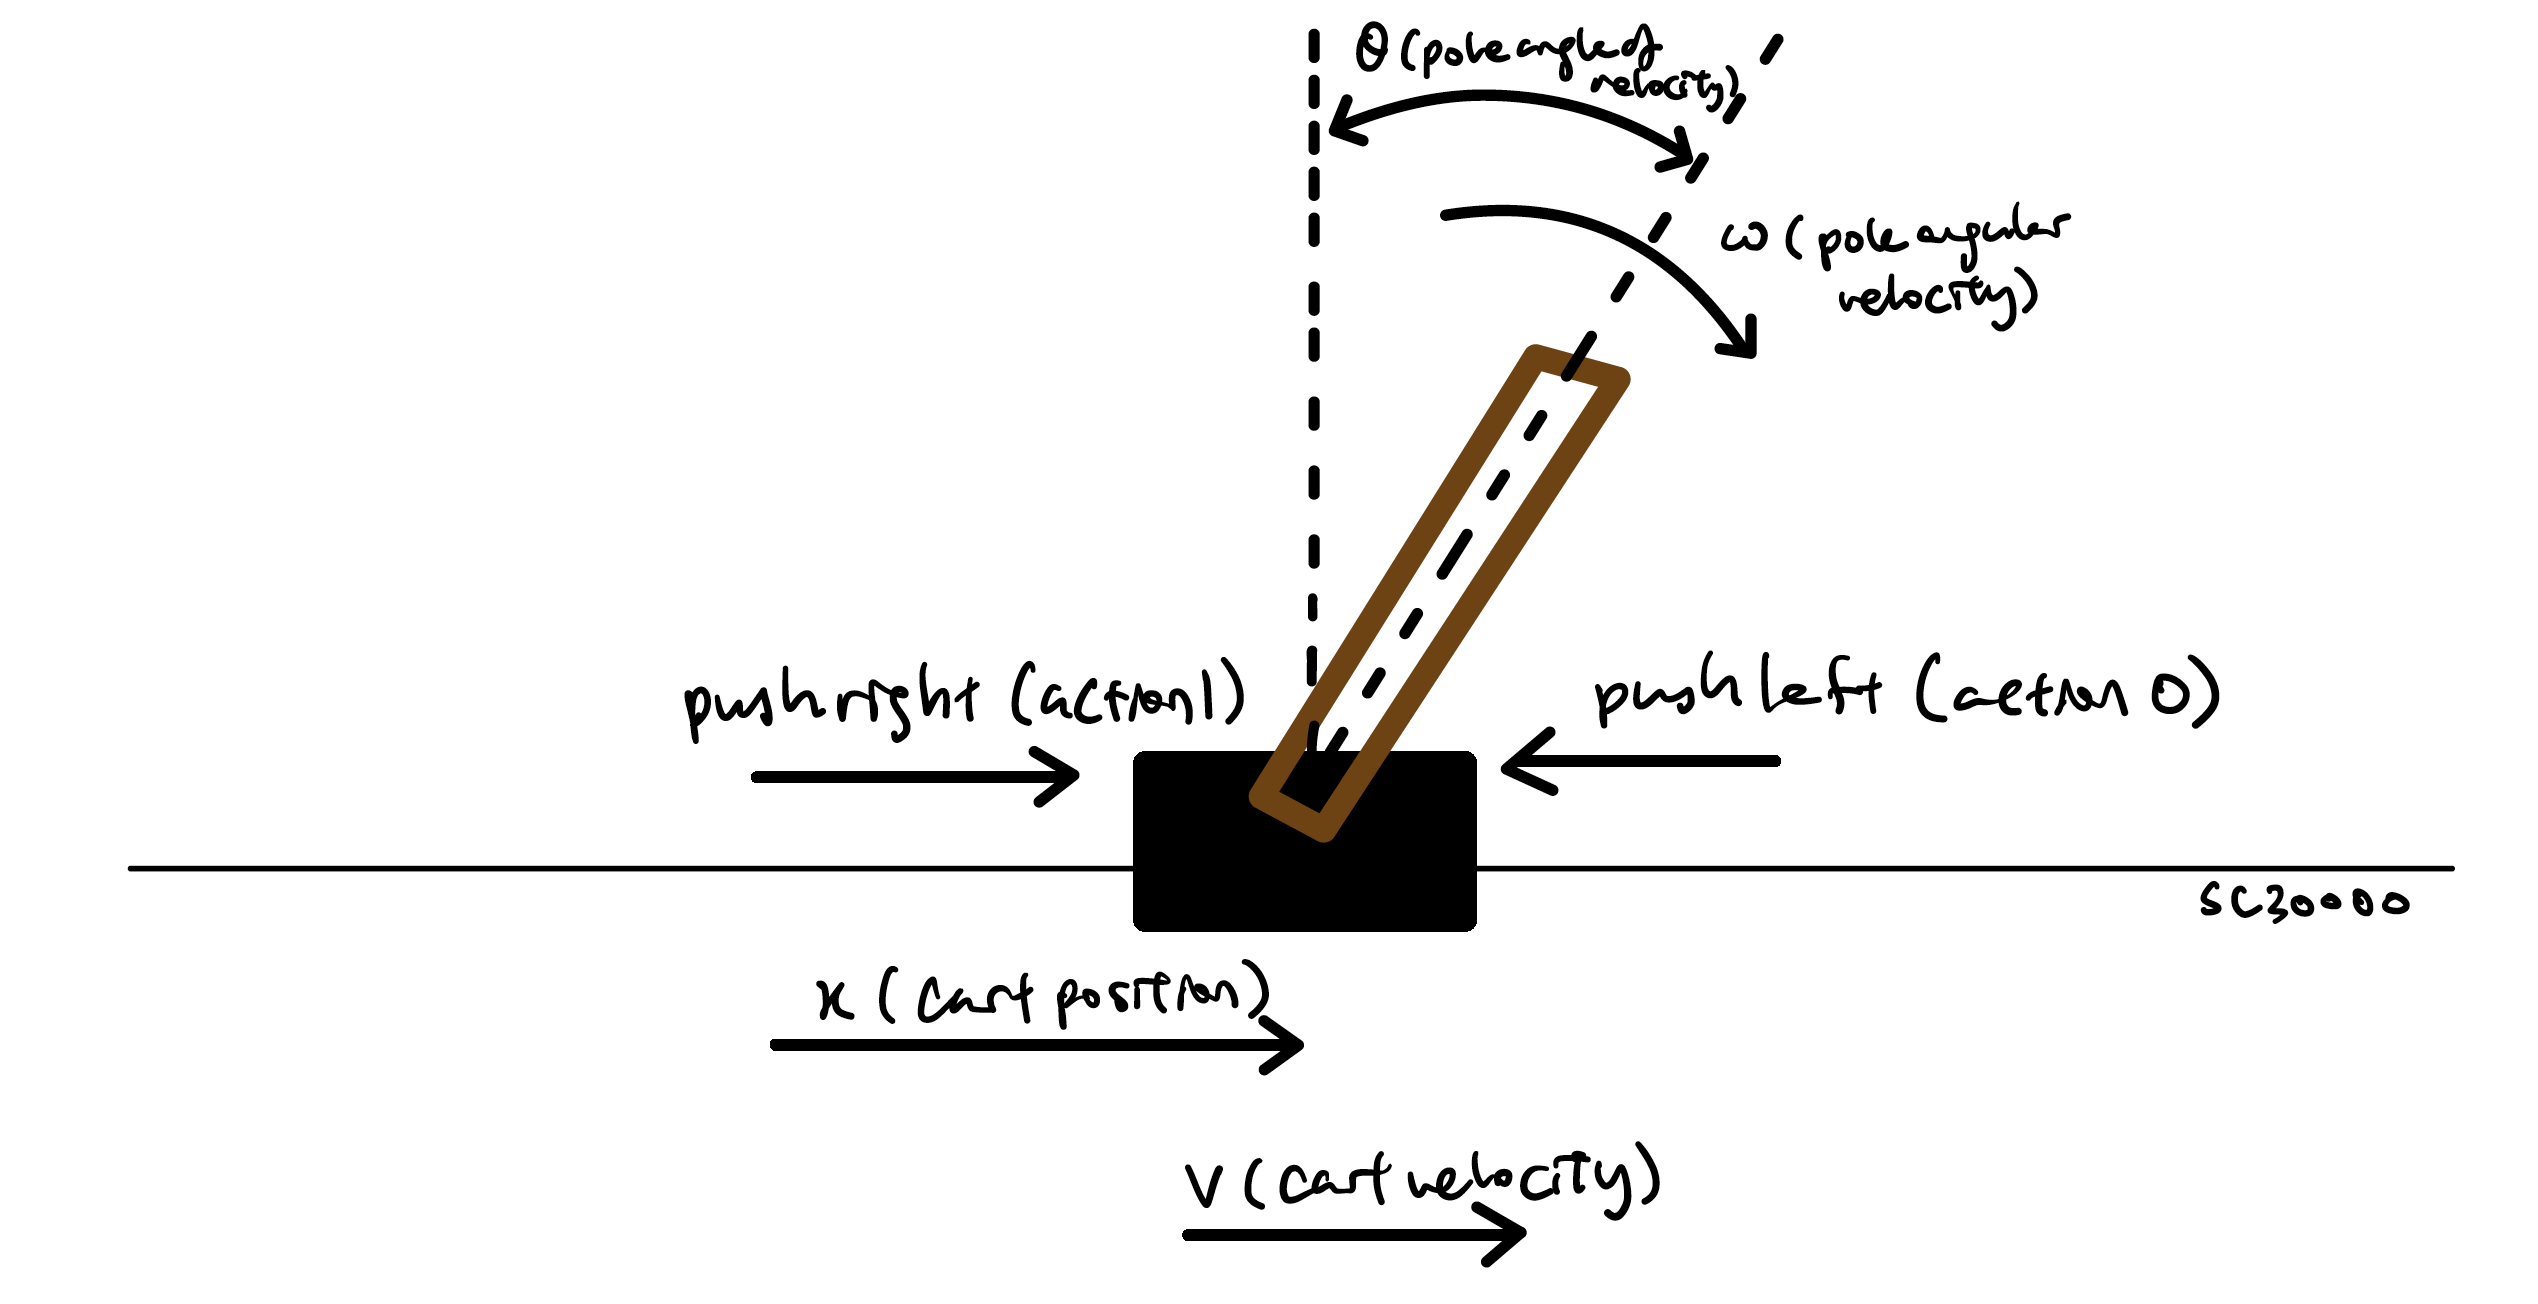 θ (pole angle of
velocity)
ω (pole angular
velocity)
push right (action 1)
push left (action 0)
SC30000
x (cart position)
v (cart velocity)